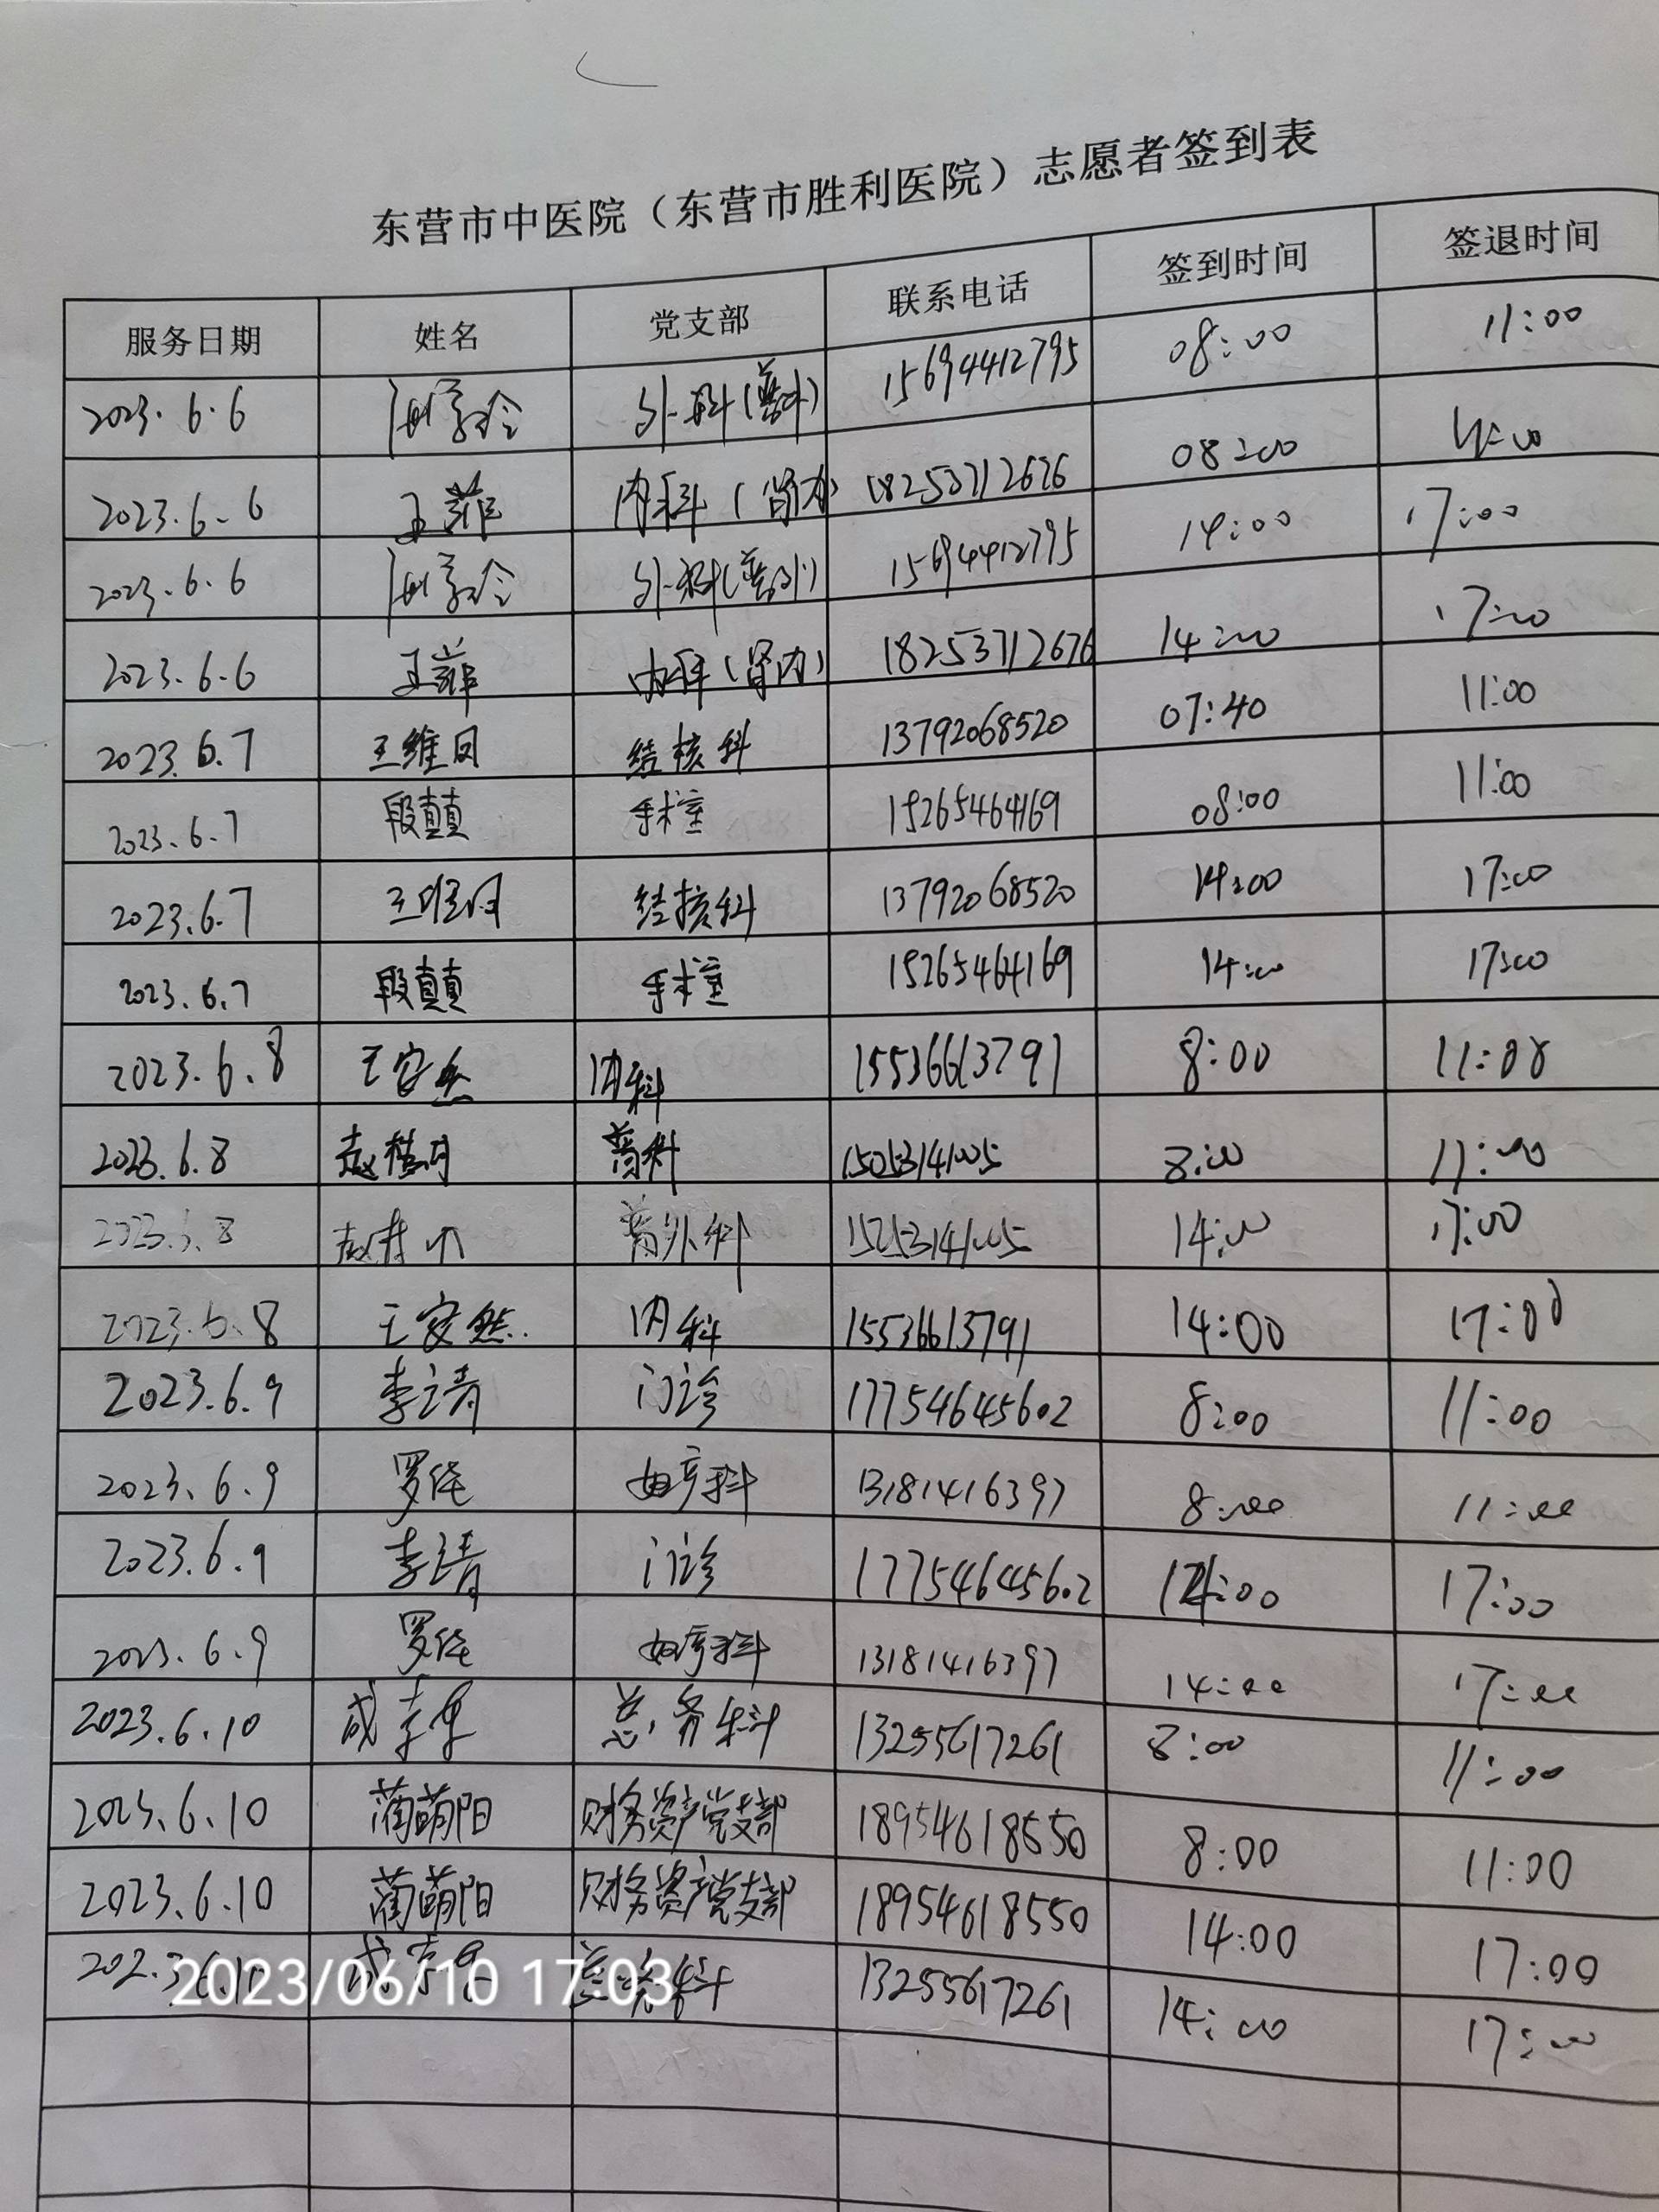 东营市中医院（东营市胜利医院）志愿者签到表
服务日期 姓名 党支部 联系电话 签到时间 签退时间
2023.6.6 外科(普外) 15694412795 08:00 11:00
2023.6.6 王菲 内科(肾内) 18253712676 08:00 11:00
2023.6.6 外科(普外) 15694412795 14:00 17:00
2023.6.6 王菲 内科(肾内) 18253712676 14:00 17:00
2023.6.7 王维同 结核科 13792068520 07:40 11:00
2023.6.7 段真真 手术室 15265464169 08:00 11:00
2023.6.7 结核科 13792068520 14:00 17:00
2023.6.7 段真真 手术室 15265464169 14:00 17:00
2023.6.8 王安然 内科 15536613791 8:00 11:00
2023.6.8 普科 8:00 11:00
2023.6.8 普外科 14:00 17:00
2023.6.8 王安然 内科 15536613791 14:00 17:00
2023.6.9 李立青 门诊 17754645602 8:00 11:00
2023.6.9 罗佳 妇产科 13181416397 8:00 11:00
2023.6.9 李立青 门诊 17754645602 14:00 17:00
2023.6.9 罗佳 妇产科 13181416397 14:00 17:00
2023.6.10 总务科 13255617261 8:00 11:00
2023.6.10 蔺萌阳 财务资产党支部 18954618550 8:00 11:00
2023.6.10 蔺萌阳 财务资产党支部 18954618550 14:00 17:00
2023.6.10 总务科 13255617261 14:00 17:00
2023/06/10 17:03